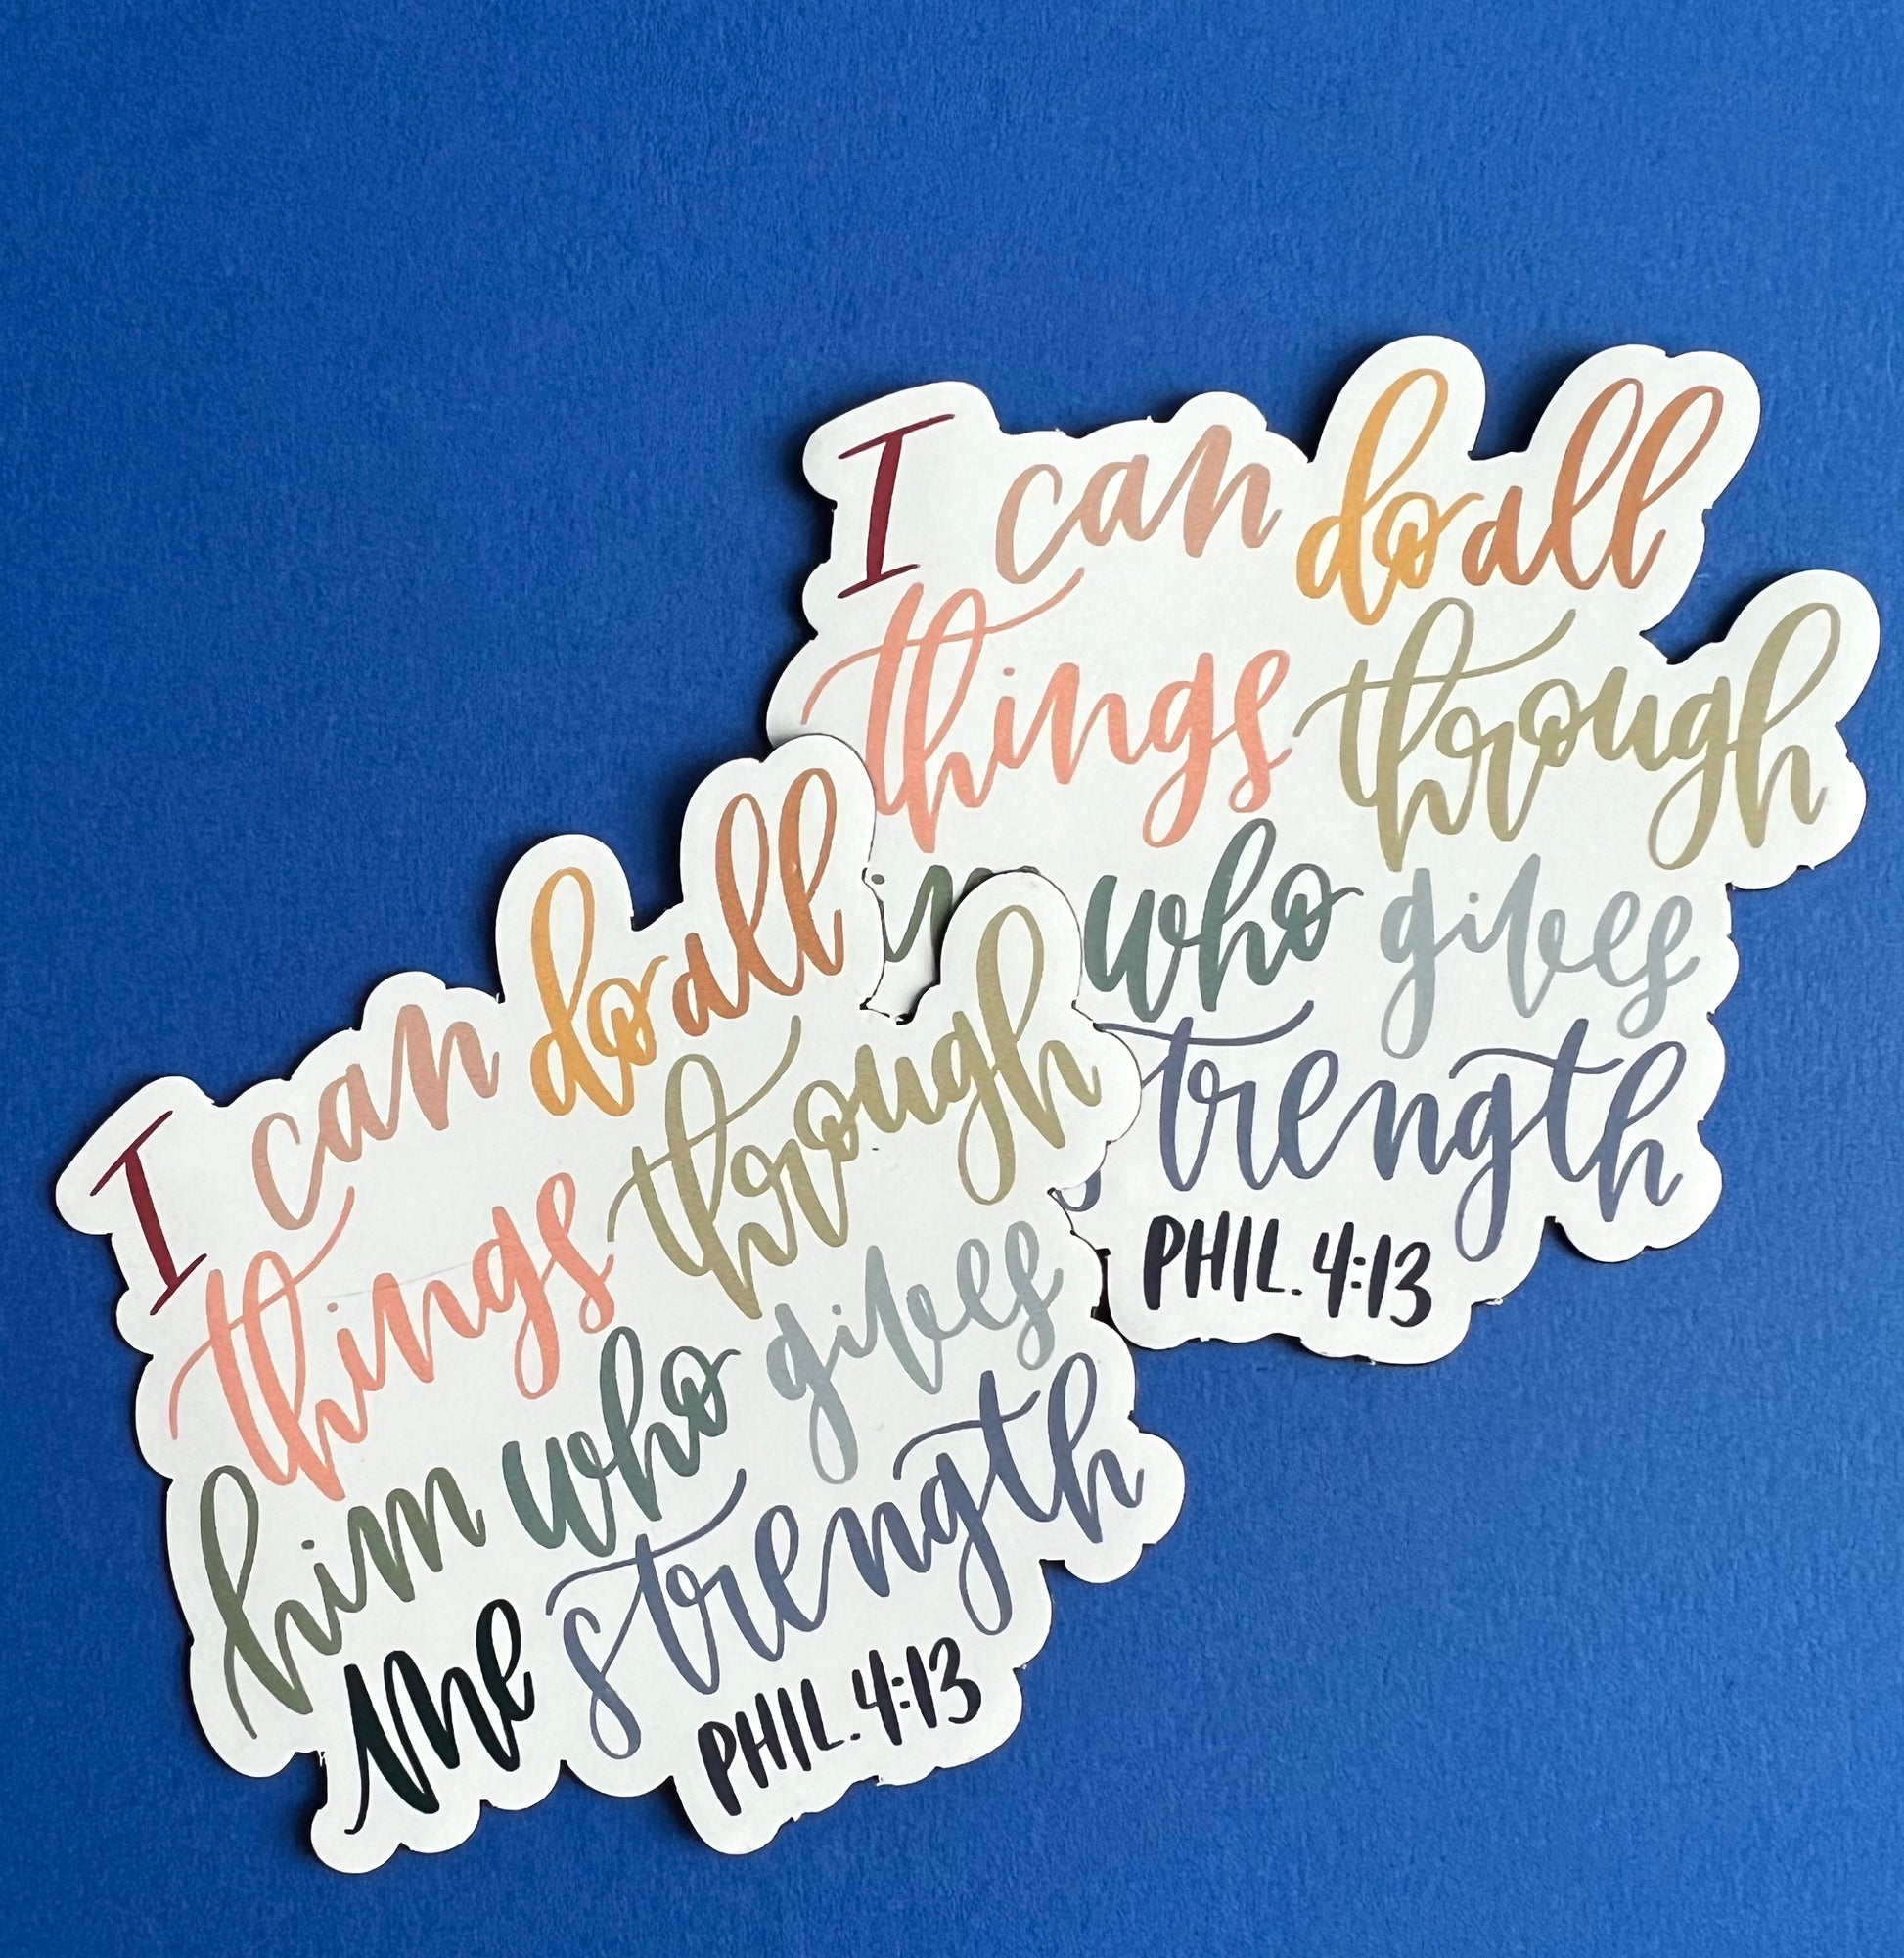 I can do all
things through
who gives
strength
PHIL. 4:13
I can do all
things through
him who gives
me strength
PHIL. 4:13